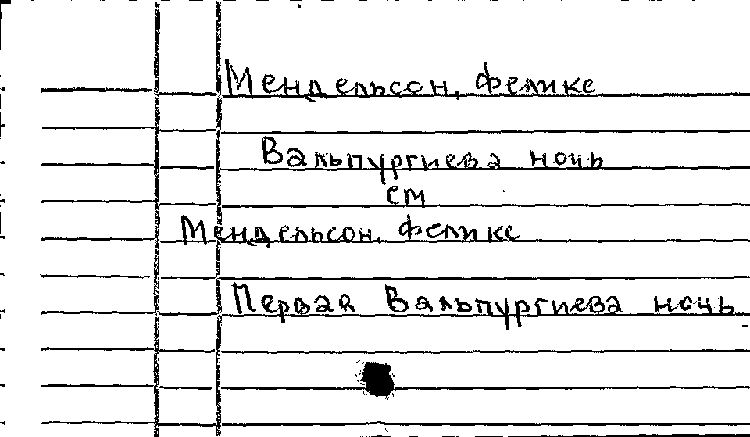 Мендельсон, Феликс
Вальпургиева ночь
см
Мендельсон, Феликс
Первая Вальпургиева ночь